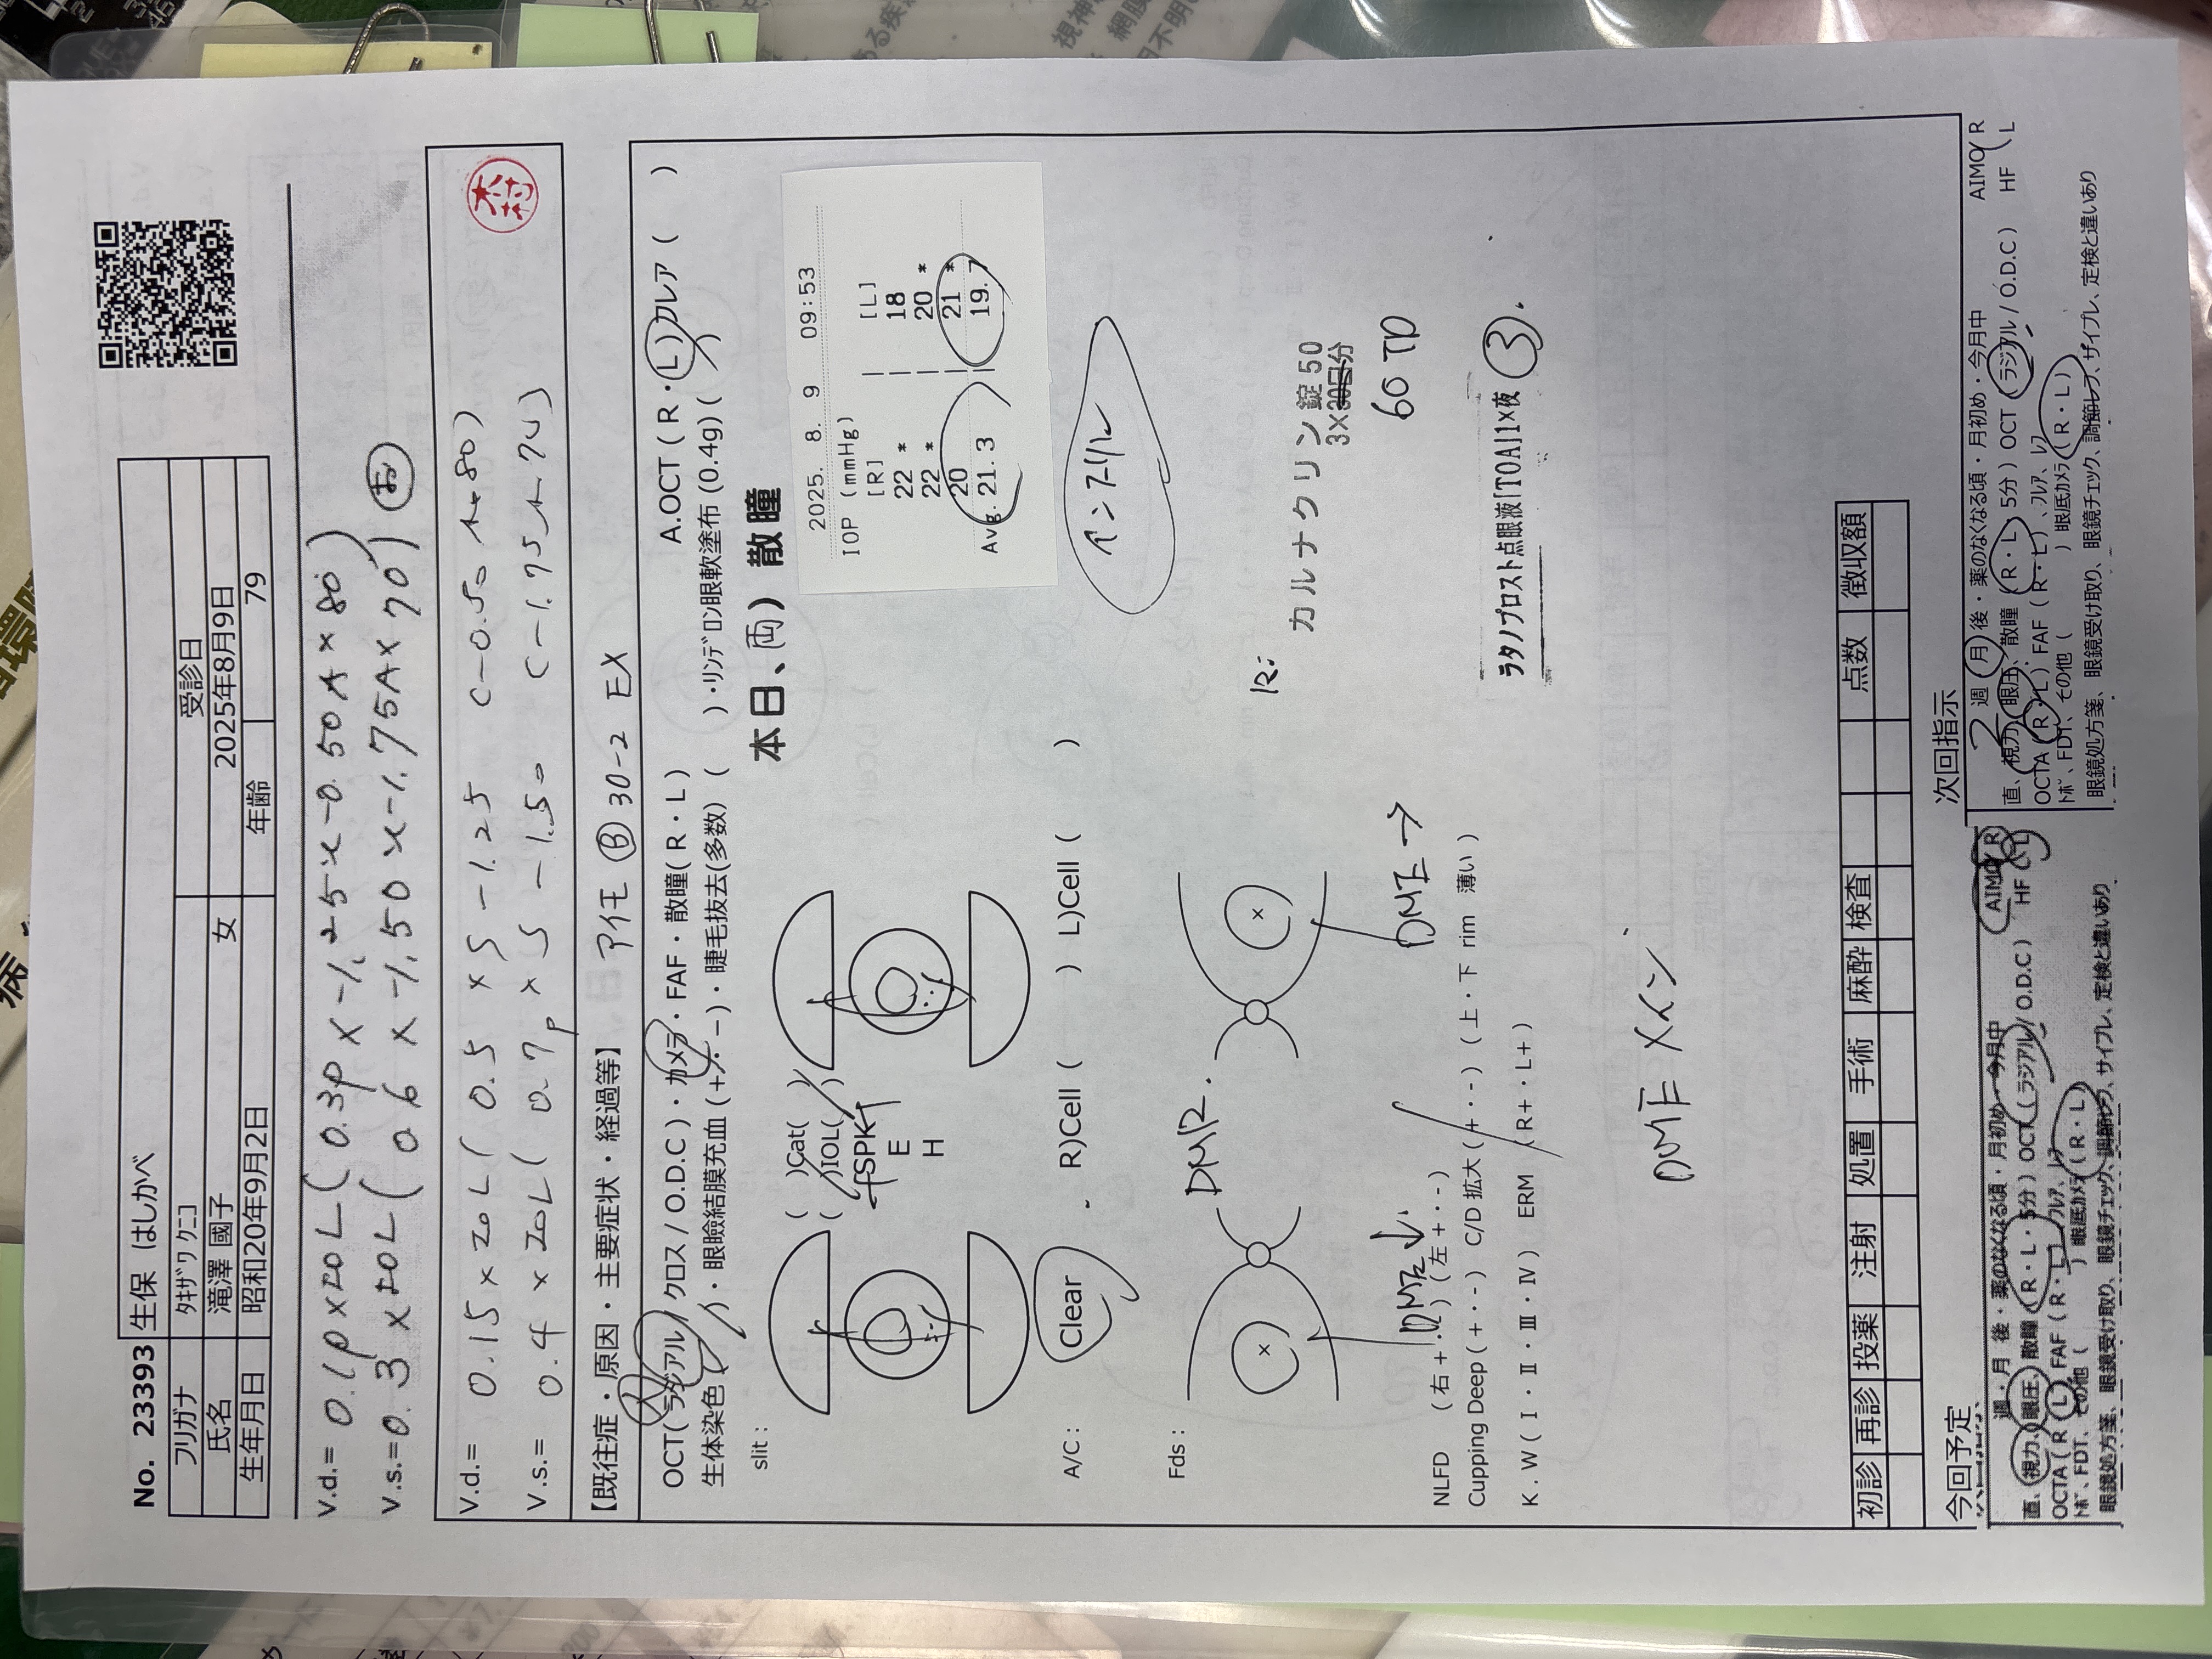 No. 23393 生保 はしかべ
フリガナ ﾀｷｻﾞﾜ ｸﾆｺ 受診日
氏名 滝澤 國子 女 2025年8月9日
生年月日 昭和20年9月2日 年齢 79
V.d.= 0.1p×IOL(0.3p×-1.25 -0.50A×80)
V.s.= 0.3×IOL(0.6×-1.50 -1.75A×70) お
V.d.= 0.15×IOL(0.5×S-1.25 C-0.50A×80)
木村
V.s.= 0.4×IOL(0.7p×S-1.50 C-1.75A70)
【既往症・原因・主要症状・経過等】 アイモ B 30-2 EX
OCT(ラジアル/クロス/O.D.C)・カメラ・FAF・散瞳(R・L) A.OCT(R・L)フレア( )
生体染色( )・眼瞼結膜充血(+・-)・睫毛抜去(多数)( )・ﾘﾝﾃﾞﾛﾝ眼軟塗布(0.4g)( )
slit: 本日、両)散瞳
( )Cat( )
( )IOL( )
SPK
E
H
2025. 8. 9 09:53
IOP (mmHg)
[R] | [L]
22 * | 18
22 * | 20 *
20 21 *
Avg. 21.3 | 19.7
A/C: Clear R)Cell( ) L)Cell( )
インスリン
Fds: DMR.
R:
カルナクリン錠50
3×30日分
60 TD
DME↓ DME→
NLFD (右+・-)(左+・-)
Cupping Deep(+・-) C/D拡大(+・-) (上・下 rim 薄い)
ラタノプロスト点眼液「TOA」1×夜 ③.
K.W(Ⅰ・Ⅱ・Ⅲ・Ⅳ) ERM (R+・L+)
DME メイン
初診 再診 投薬 注射 処置 手術 麻酔 検査 点数 徴収額
今回予定
週・月 後・薬のなくなる頃・月初め・今月中 AIMO R
直、視力、眼圧、散瞳(R・L・5分) OCT(ラジアル/O.D.C) HF L
OCTA(R・L) FAF(R・L)、ﾌﾚｱ、ﾚﾌ
ﾄﾎﾟ、FDT、その他( ) 眼底ｶﾒﾗ(R・L)
眼鏡処方箋、眼鏡受け取り、眼鏡チェック、調節レフ、サイプレ、定検と違いあり
次回指示
2 週・月 後・薬のなくなる頃・月初め・今月中 AIMO R
直、視力、眼圧、散瞳(R・L・5分) OCT(ラジアル/O.D.C) HF L
OCTA(R・L) FAF(R・L)、ﾌﾚｱ、ﾚﾌ
ﾄﾎﾟ、FDT、その他( ) 眼底ｶﾒﾗ(R・L)
眼鏡処方箋、眼鏡受け取り、眼鏡チェック、調節レフ、サイプレ、定検と違いあり